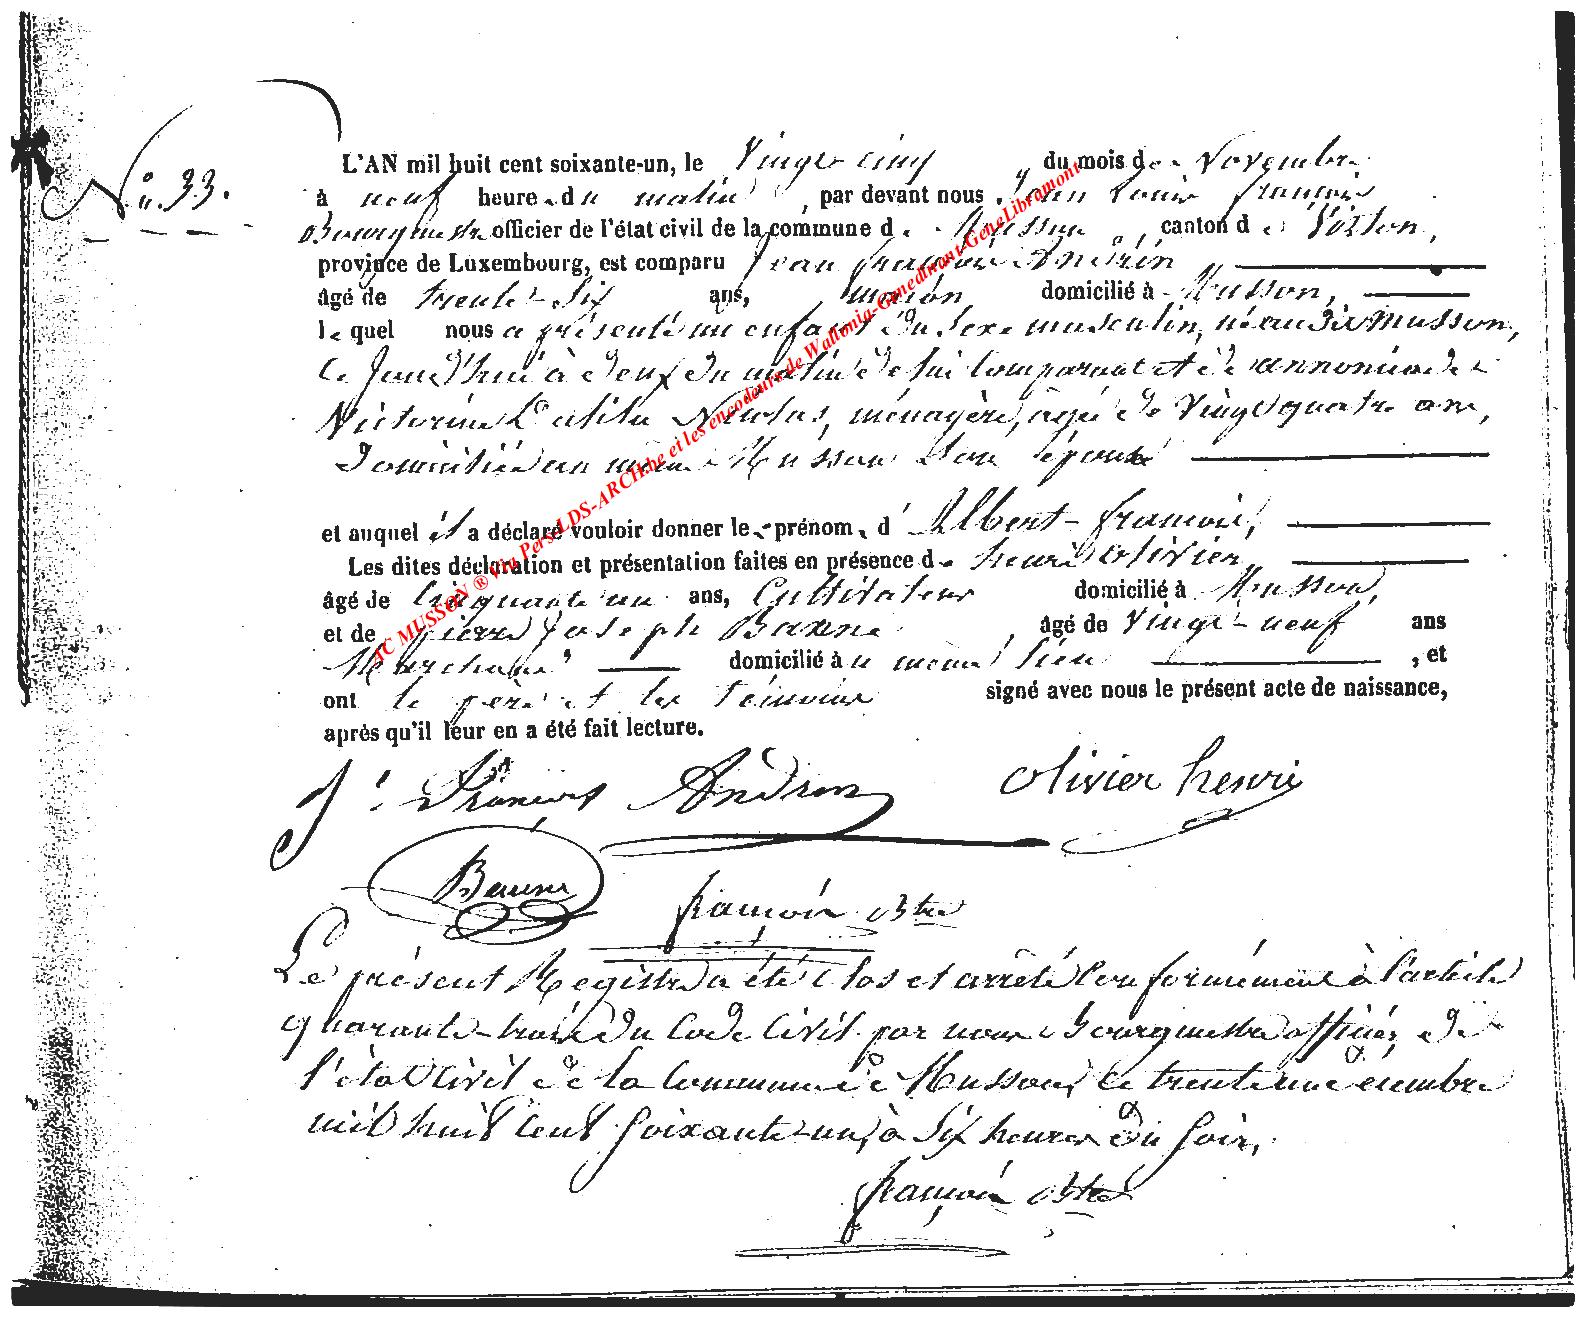 N° 33.
L'AN mil huit cent soixante-un, le Vingt cinq du mois de Novembre
à neuf heures du matin, par devant nous Jean Louis françois
Bourgmestre officier de l'état civil de la commune de Musson, canton de Virton,
province de Luxembourg, est comparu Jean françois Andrin
âgé de trente-Six ans, maçon domicilié à Musson,
lequel nous a présenté un enfant du Sexe masculin, né au dit Musson,
ce Jourd'hui à deux du matin de lui Comparant et de
Victorine Nicolas, ménagère, agée de Vingt quatre ans,
domiciliée au même Musson Son épouse
et auquel il a déclaré vouloir donner les prénoms d'Albert-françois,
Les dites déclaration et présentation faites en présence de henri olivier
âgé de Cinquante un ans, Cultivateur domicilié à Musson,
et de pierre Joseph, âgé de Vingt-neuf ans
Marchand domicilié au même lieu, et
ont le père et les témoins signé avec nous le présent acte de naissance,
après qu'il leur en a été fait lecture.
J. François Andrin olivier henri
françois Btre
Le présent Registre a été Clos et arrêté Conformément à l'article
quarante-trois du Code Civil par nous Bourgmestre officier de
l'état Civil de la Commune de Musson, Ce trente un décembre
mil huit Cent Soixante-un, à Six heures du Soir.
françois Btre
JC MUSSON ® Via Perso LDS-ARCH.be et les encodeurs de Wallonia-Genedinant-GeneLibramont